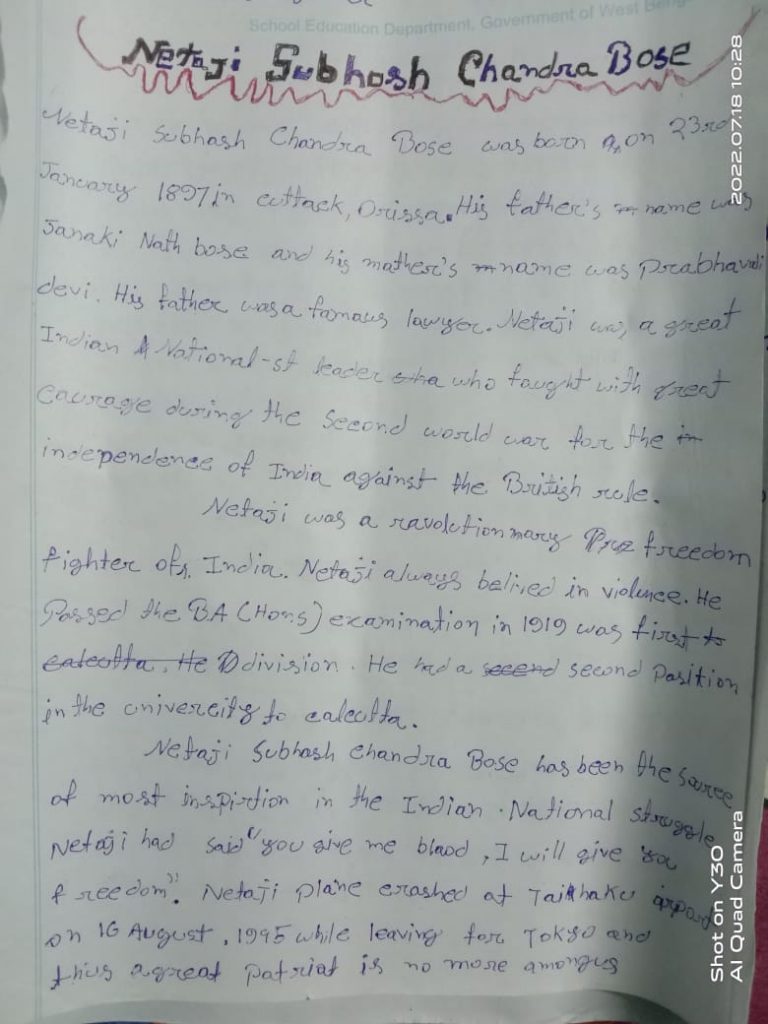 School Education Department, Government of West Beng
Netaji Subhosh Chandra Bose
Netaji Subhash Chandra Bose was born on 23rd
January 1897 in cuttack, Orissa. His father's name was
Janaki Nath bose and his mather's name was Prabhavati
devi. His father was a famous lawyer. Netaji was a great
Indian National-st leader who faught with great
caurage during the Second world war for the in
independence of India against the British rule.
Netaji was a ravolutionmary freedom
fighter of India. Netaji always belived in violence. He
Passed the BA (Hons) examination in 1919 was first to
calcutta. He Ddivision. He had a second second Position
in the univercity to calcutta.
Netaji Subhash chandra Bose has been the source
of most inspirtion in the Indian . National struggle
Netaji had said "you give me blaod , I will give you
freedom". Netaji Plane crashed at Taihhaku airport
on 16 August, 1945 while leaving for Tokyo and
thus a great Patriat is no more amongus
2022.07.18 10:28
Shot on Y30
AI Quad Camera